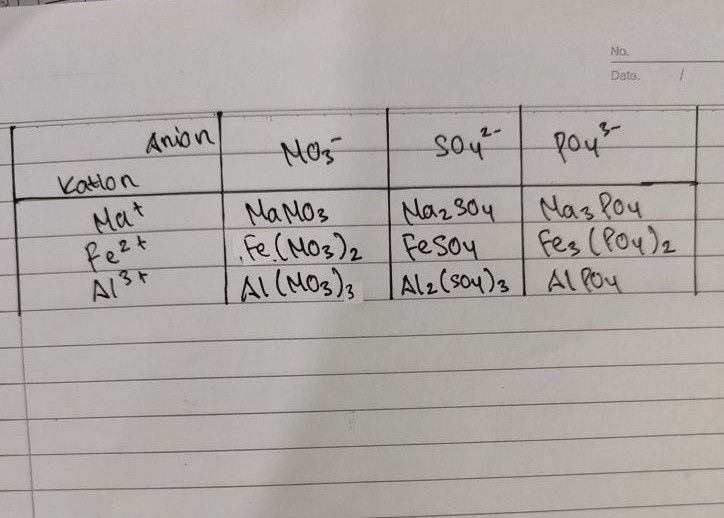 No.
Date. /
Anion
Kation
NO₃⁻
SO₄²⁻
PO₄³⁻
Na⁺ NaNO₃ Na₂SO₄ Na₃PO₄
Fe²⁺ Fe(NO₃)₂ FeSO₄ Fe₃(PO₄)₂
Al³⁺ Al(NO₃)₃ Al₂(SO₄)₃ AlPO₄